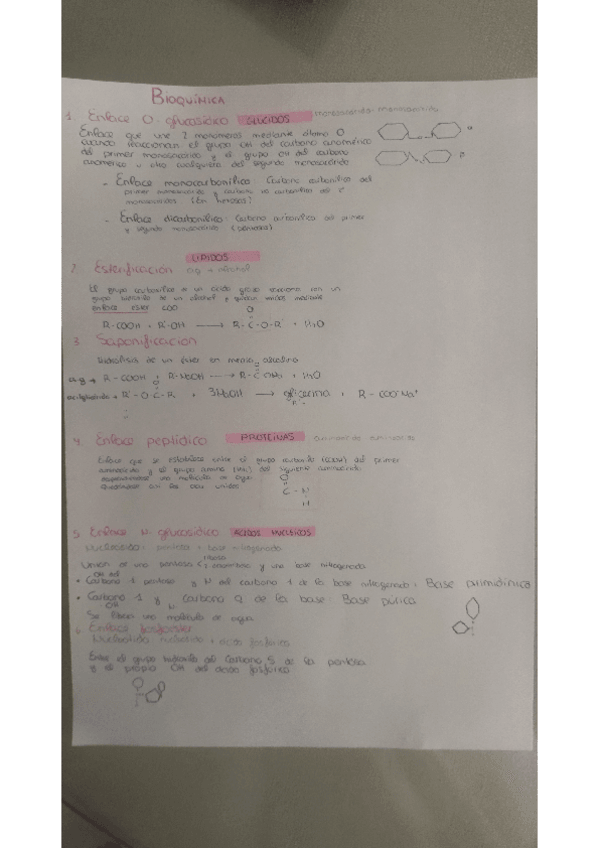 BIOQUÍMICA
1. Enlace O-glucosídico GLÚCIDOS monosacárido-monosacárido
Enlace que une 2 monómeros mediante átomo O
cuando reaccionan el grupo OH del carbono anomérico
del primer monosacárido y el grupo OH del carbono
anomérico u otro cualquiera del segundo monosacárido
- Enlace monocarbonílico: Carbono carbonílico del
primer monosacárido y carbono no carbonílico del 2º
monosacárido
- Enlace dicarbonílico: Carbono carbonílico del primer
y segundo monosacárido
LÍPIDOS
2. Esterificación a.g + alcohol
El grupo carboxílico de un ácido graso reacciona con un
grupo hidroxilo de un alcohol y quedan unidos mediante
enlace ester COO
O
R-COOH + R'-OH → R-C-O-R' + H2O
3. Saponificación
Hidrólisis de un éster en medio alcalino
a.g → R-COOH + R-NaOH → R-C-ONa + H2O
O
R'-O-C-R + 3NaOH → glicerina + R-COO Na+
4. Enlace peptídico PROTEÍNAS
Enlace que se establece entre el grupo carboxilo (COOH) del primer
aminoácido y el grupo amino (NH2) del siguiente aminoácido
una molécula de agua
O
C-N
H
5. Enlace N-glucosídico ÁCIDOS NUCLEICOS
Nucleósido: pentosa + base nitrogenada
Unión de una pentosa y una base nitrogenada
OH del
• Carbono 1 pentosa y N del carbono 1 de la base nitrogenada: Base pirimidínica
• Carbono 1 y carbono 9 de la base: Base púrica
OH N
Se libera una molécula de agua
6. Enlace fosfoester
Nucleótido: nucleósido + ácido fosfórico
Entre el grupo hidroxilo del carbono 5 de la pentosa
y el propio OH del ácido fosfórico